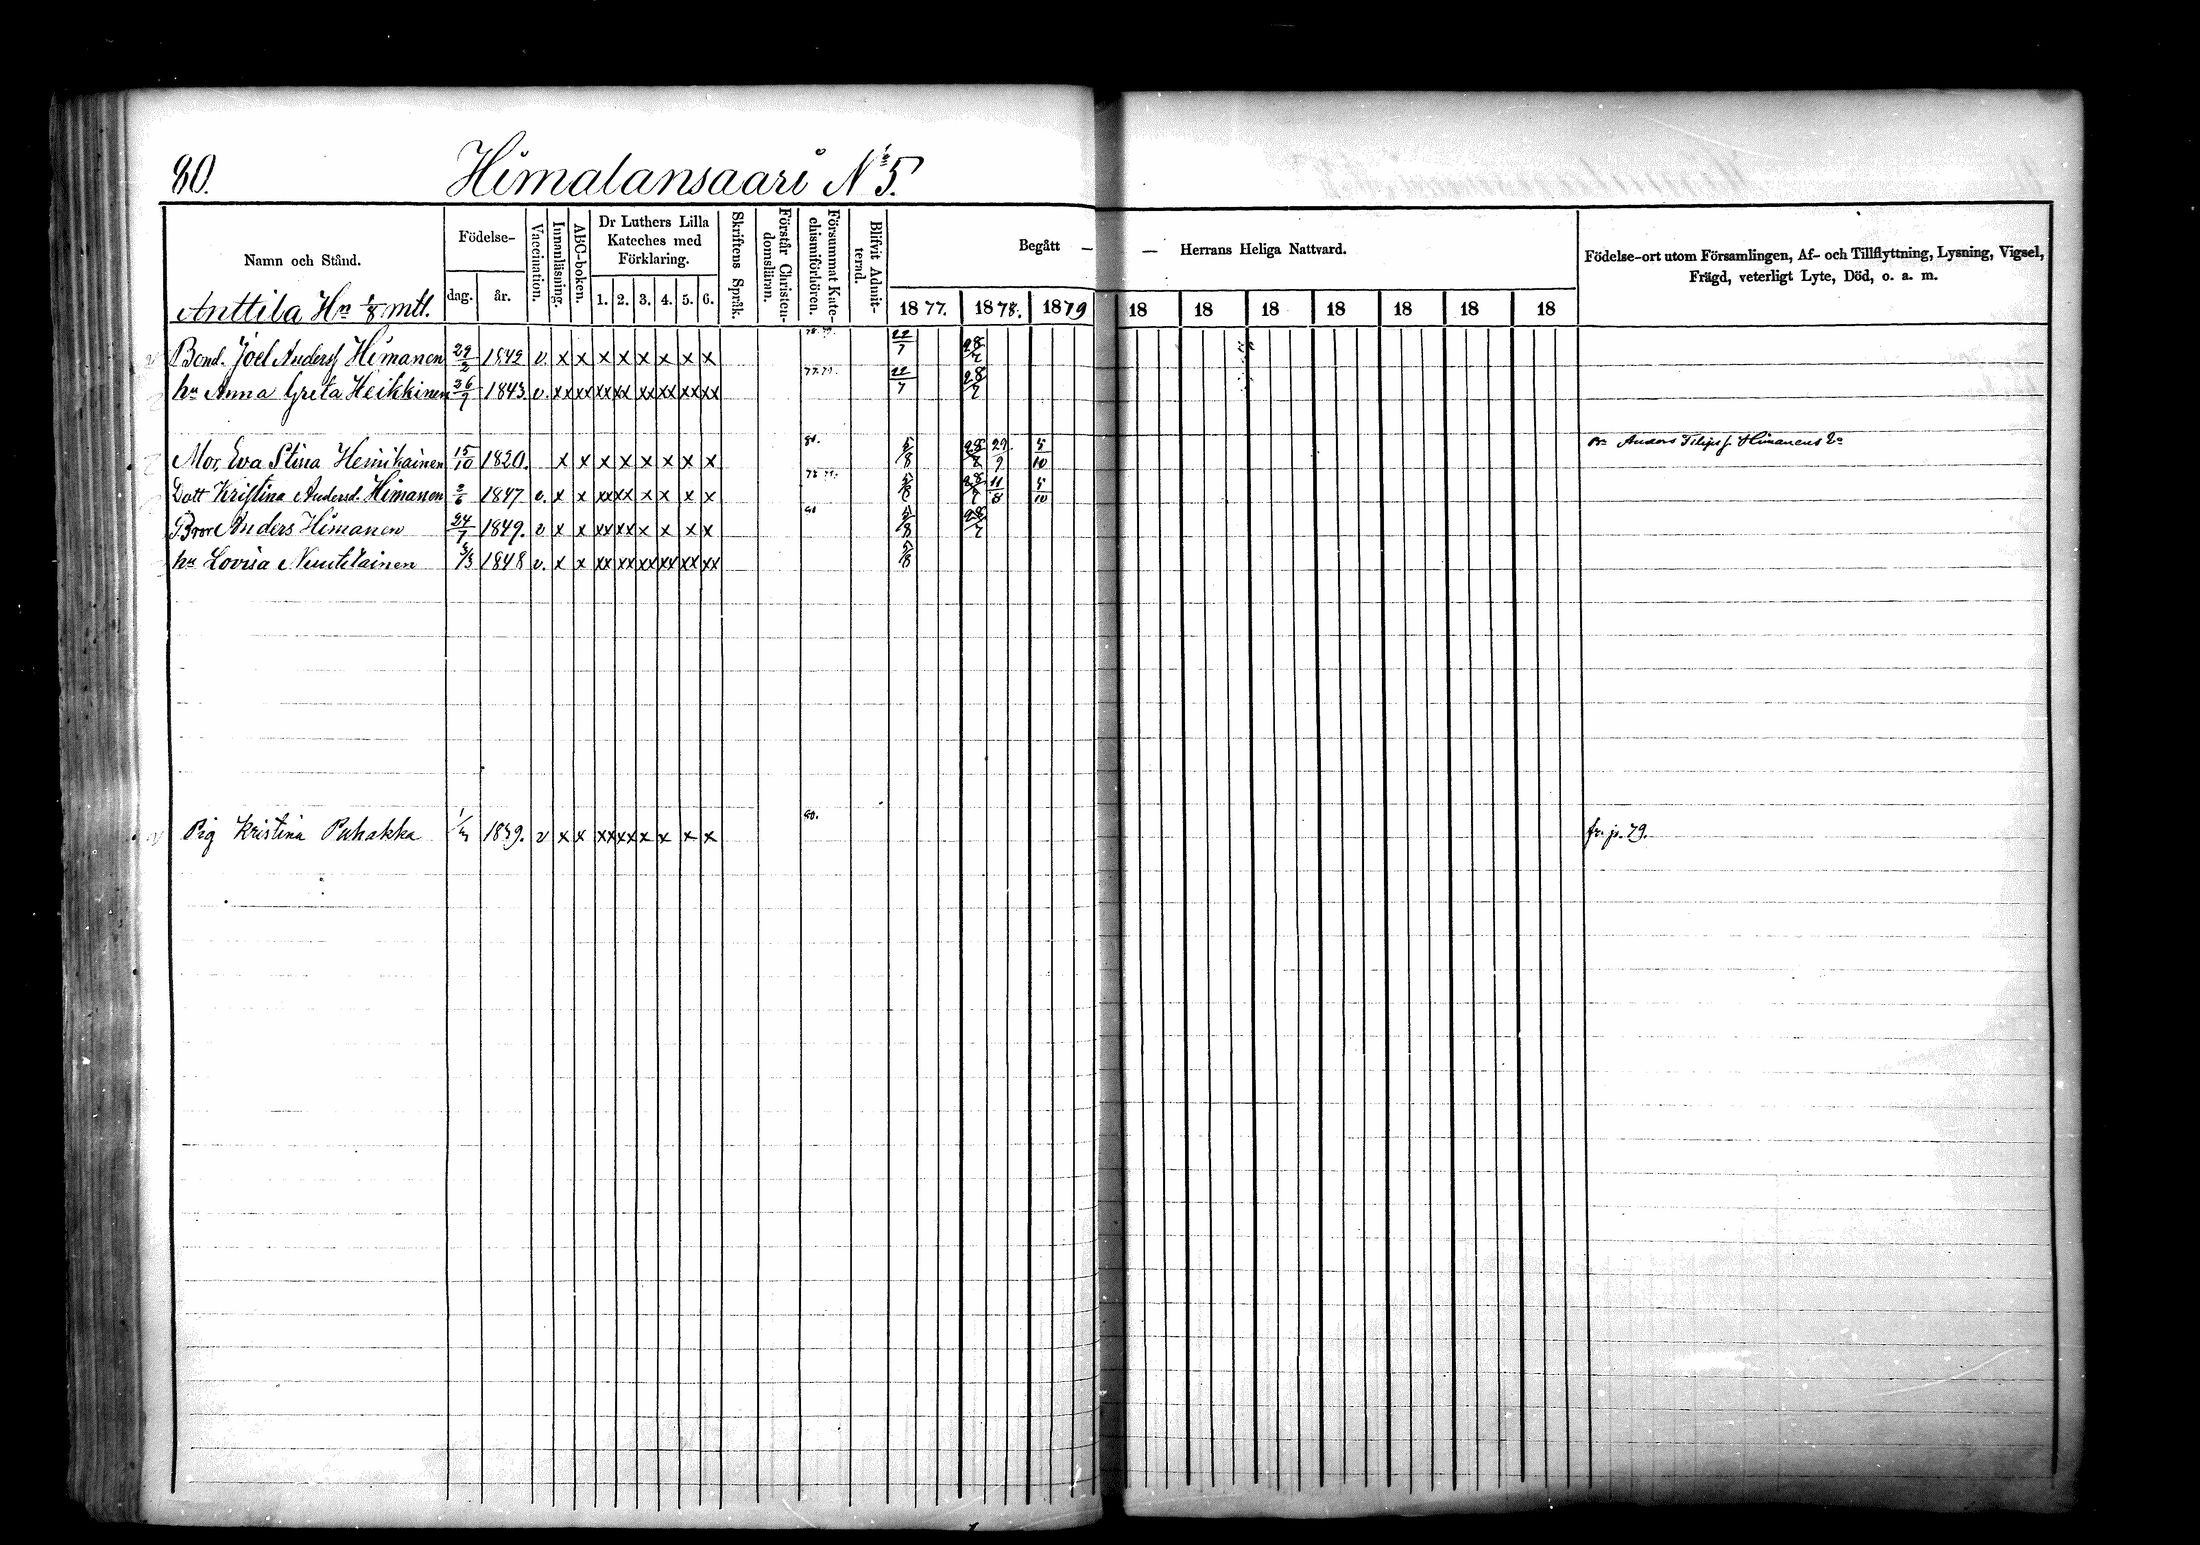 80. Himalansaari No 5.
Namn och Stånd. Födelse- dag. år. Vaccination. Innanläsning. ABC-boken. Dr Luthers Lilla Kateches med Förklaring. 1. 2. 3. 4. 5. 6. Skriftens Språk. Förstår Christendomsläran. Försummat Katechismiförhören. Blifvit Admitterad. Begått — — Herrans Heliga Nattvard. Födelse-ort utom Församlingen, Af- och Tillflyttning, Lysning, Vigsel, Frägd, veterligt Lyte, Död, o. a. m.
Anttila Hn 1/8 mtl. 1877. 1878. 1879 18 18 18 18 18 18 18
Bond. Joel Anderss Himanen 29/2 1842 v. x x x x x x x x 22/7 28/7
hu Anna Greta Heikkinen 26/7 1843 v. xx xx xx xx xx xx xx xx 77.79. 22/7 28/7
Mor, Eva Stina Heinikainen 15/10 1820. x x x x x x x x 80. 5/8 28/8 29/9 5/10 Anders Filipss Himanens Ea
Dott Kristina Andersd. Himanen 2/6 1847 v. x x xx xx x x x x 5/8 28/7 11/8 5/10
Bror Anders Himanen 24/7 1849. v x x xx xx x x x x 80 5/8 28/7
hu Lovisa Nuutilainen 1848 v. x x xx xx xx xx xx xx 5/8
Pig Kristina Puhakka 1839. v x x xx xx x x x x 80. fr. p. 79.